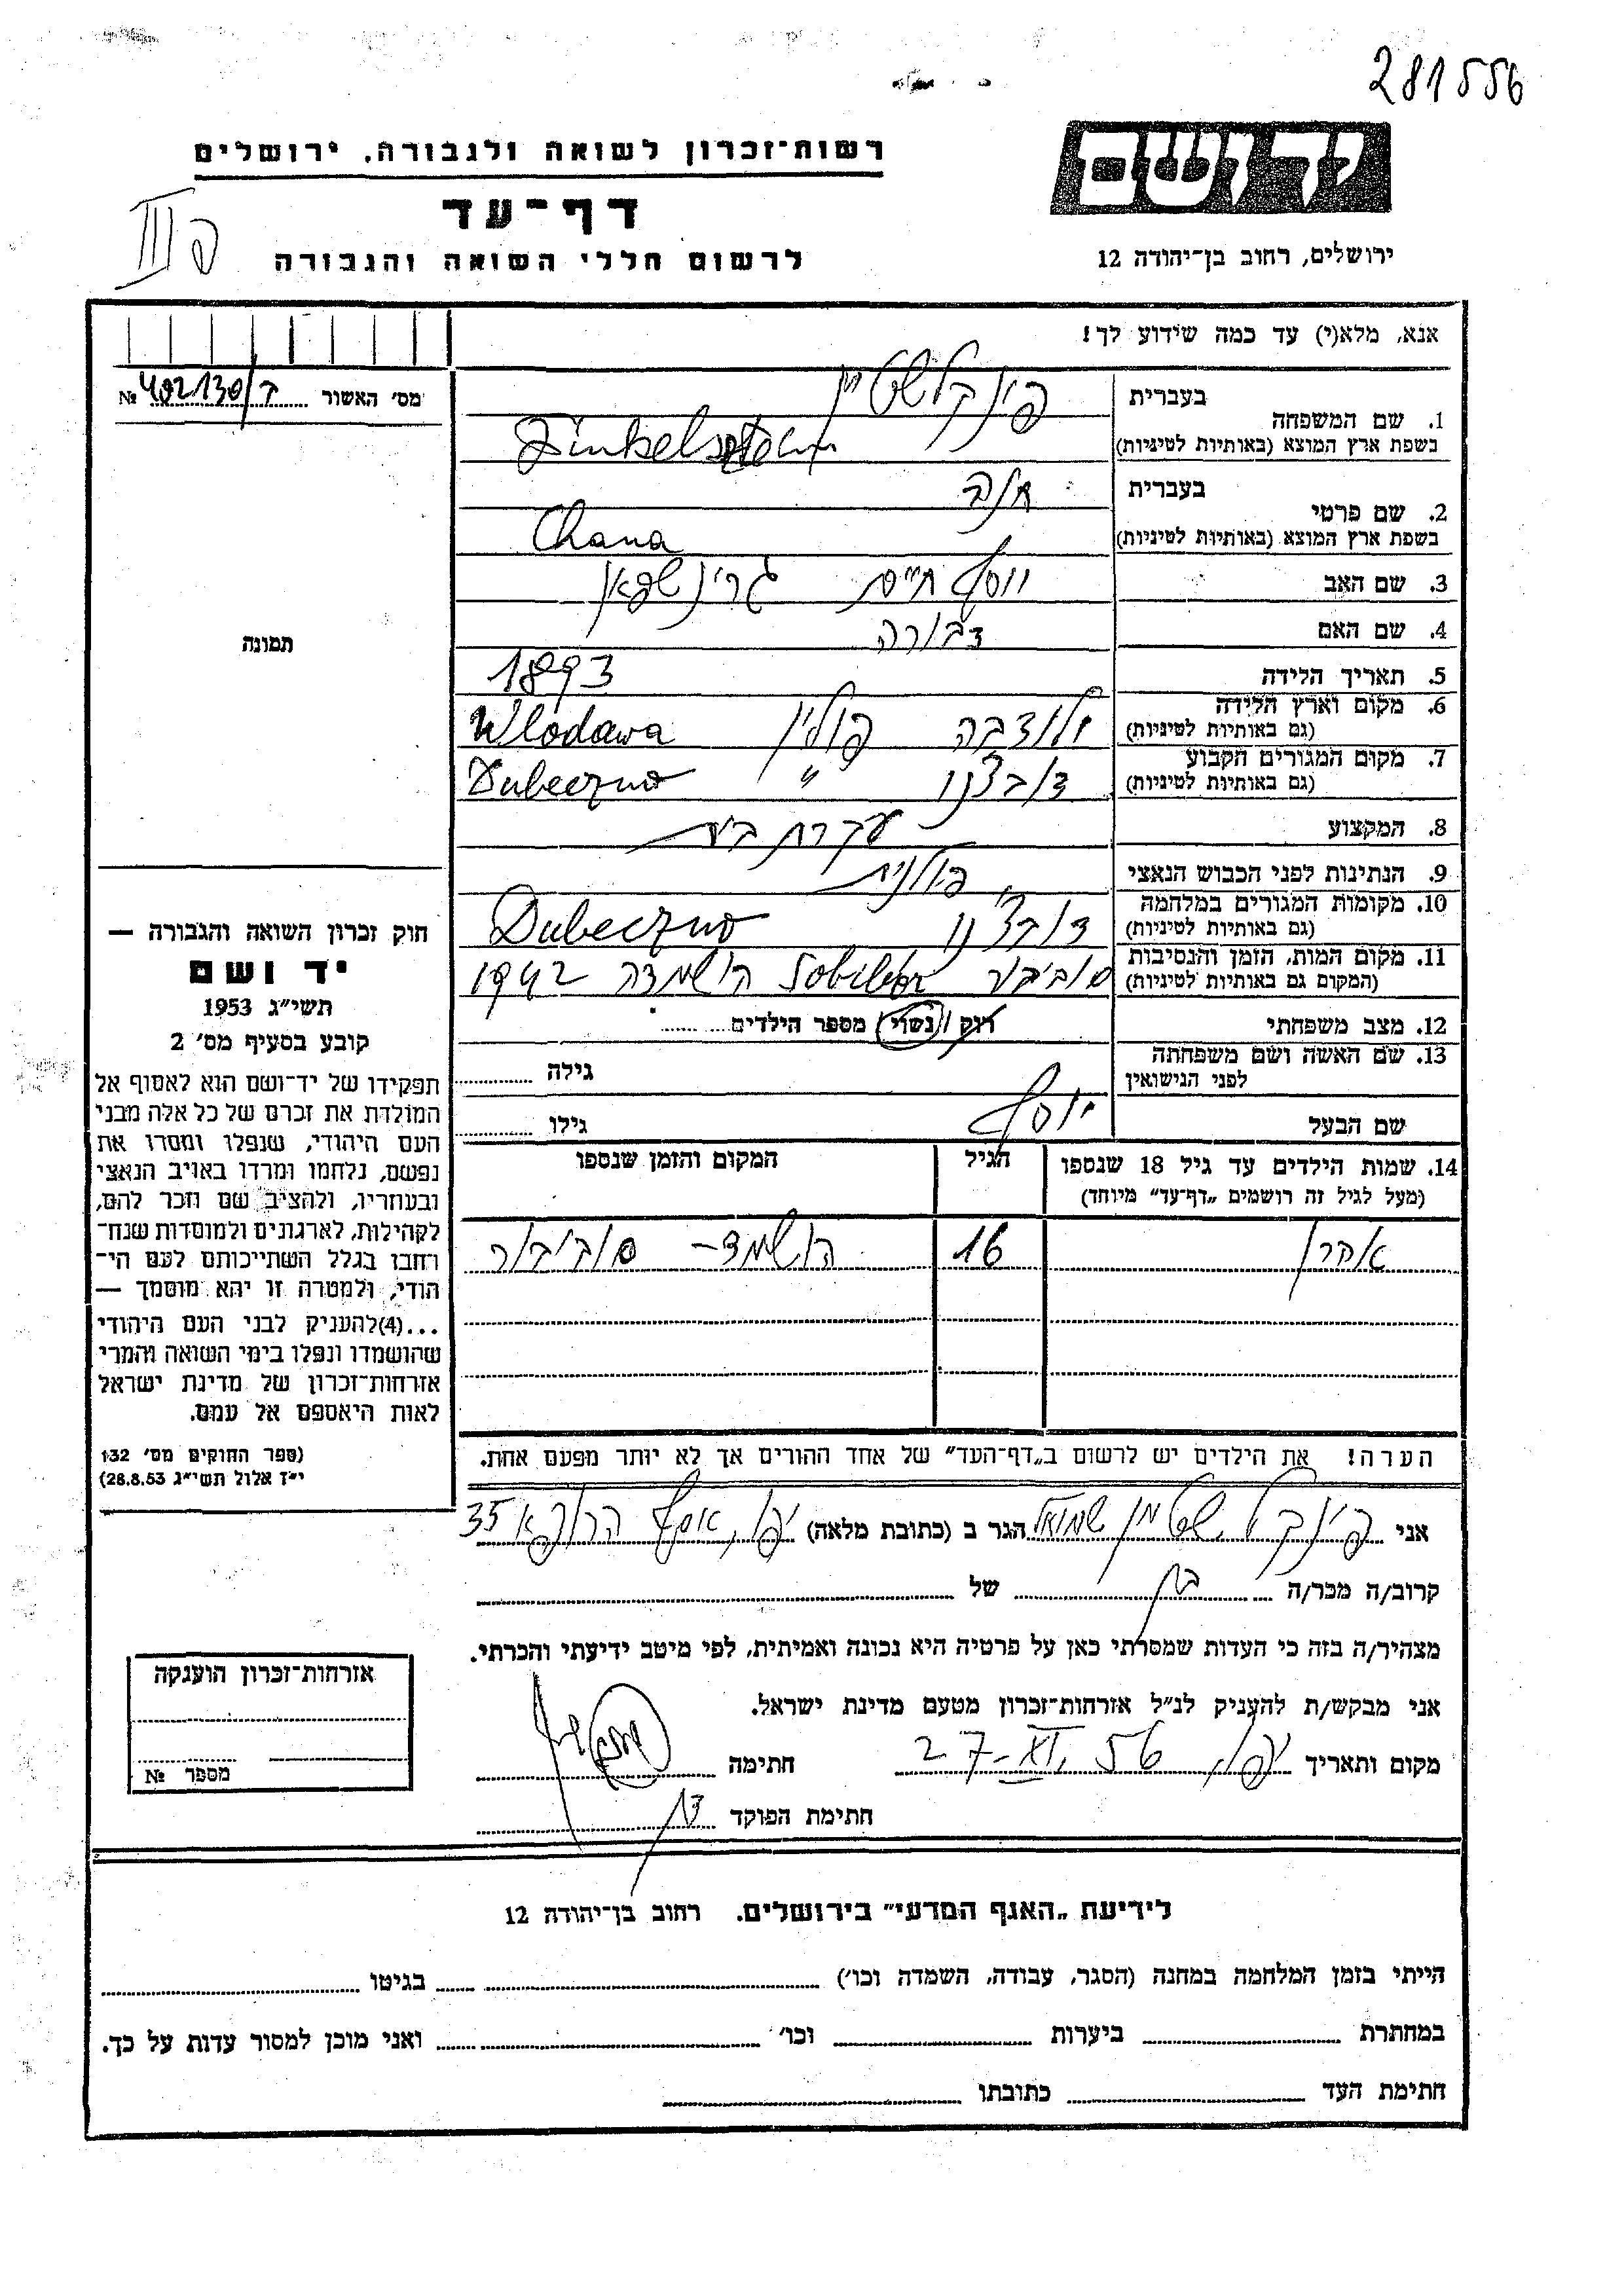 281556
יד ושם
ירושלים, רחוב בן־יהודה 12
רשות־זכרון לשואה ולגבורה, ירושלים
דף־עד
לרשום חללי השואה והגבורה
פ III
אנא, מלא(י) עד כמה שידוע לך!
מס׳ האשור 402130/ד №
תמונה
1. שם המשפחה בעברית פינקלשטיין
בשפת ארץ המוצא (באותיות לטיניות) Finkelsztein
2. שם פרטי בעברית חנה
בשפת ארץ המוצא (באותיות לטיניות) Chana
3. שם האב יוסף חיים גרינשפאן
4. שם האם דבורה
5. תאריך הלידה 1893
6. מקום וארץ הלידה (גם באותיות לטיניות) ולודבה פולין Wlodawa
7. מקום המגורים הקבוע (גם באותיות לטיניות) דובצ׳נו " Dubeczno
8. המקצוע עקרת בית
9. הנתינות לפני הכבוש הנאצי פולנית
10. מקומות המגורים במלחמה (גם באותיות לטיניות) דובצ׳נו Dubeczno
11. מקום המות, הזמן והנסיבות (המקום גם באותיות לטיניות) סוביבור Sobibor הושמדה 1942
12. מצב משפחתי רוק/נשוי/ מספר הילדים
13. שם האשה ושם משפחתה לפני הנישואין גילה
שם הבעל יוסף גילו
14. שמות הילדים עד גיל 18 שנספו (מעל לגיל זה רושמים „דף־עד" מיוחד) הגיל המקום והזמן שנספו
אהרן 16 הושמד - סוביבור
הערה! את הילדים יש לרשום ב„דף־העד" של אחד ההורים אך לא יותר מפעם אחת.
חוק זכרון השואה והגבורה —
יד ושם
תשי״ג 1953
קובע בסעיף מס׳ 2
תפקידו של יד־ושם הוא לאסוף אל
המולדת את זכרם של כל אלה מבני
העם היהודי, שנפלו ומסרו את
נפשם, נלחמו ומרדו באויב הנאצי
ובעוזריו, ולהציב שם וזכר להם,
לקהילות, לארגונים ולמוסדות שנח־
רחבו בגלל השתייכותם לעם הי־
הודי, ולמטרה זו יהא מוסמך —
...(4)להעניק לבני העם היהודי
שהושמדו ונפלו בימי השואה והמרי
אזרחות־זכרון של מדינת ישראל
לאות היאספם אל עמם.
(ספר החוקים מס׳ 132
י״ז אלול תשי״ג 28.8.53)
אני פינקלשטיין שמואל הגר ב (כתובת מלאה) יפו, אסף הרופא 35
קרוב/ה מכר/ה בן של
מצהיר/ה בזה כי העדות שמסרתי כאן על פרטיה היא נכונה ואמיתית, לפי מיטב ידיעתי והכרתי.
אני מבקש/ת להעניק לנ״ל אזרחות־זכרון מטעם מדינת ישראל.
מקום ותאריך יפו, 27-XI.56 חתימה
חתימת הפוקד
אזרחות־זכרון הוענקה
מספר №
לידיעת „האגף המדעי" בירושלים. רחוב בן־יהודה 12
הייתי בזמן המלחמה במחנה (הסגר, עבודה, השמדה וכו׳) בגיטו
במחתרת ביערות וכו׳ ואני מוכן למסור עדות על כך.
חתימת העד כתובתו